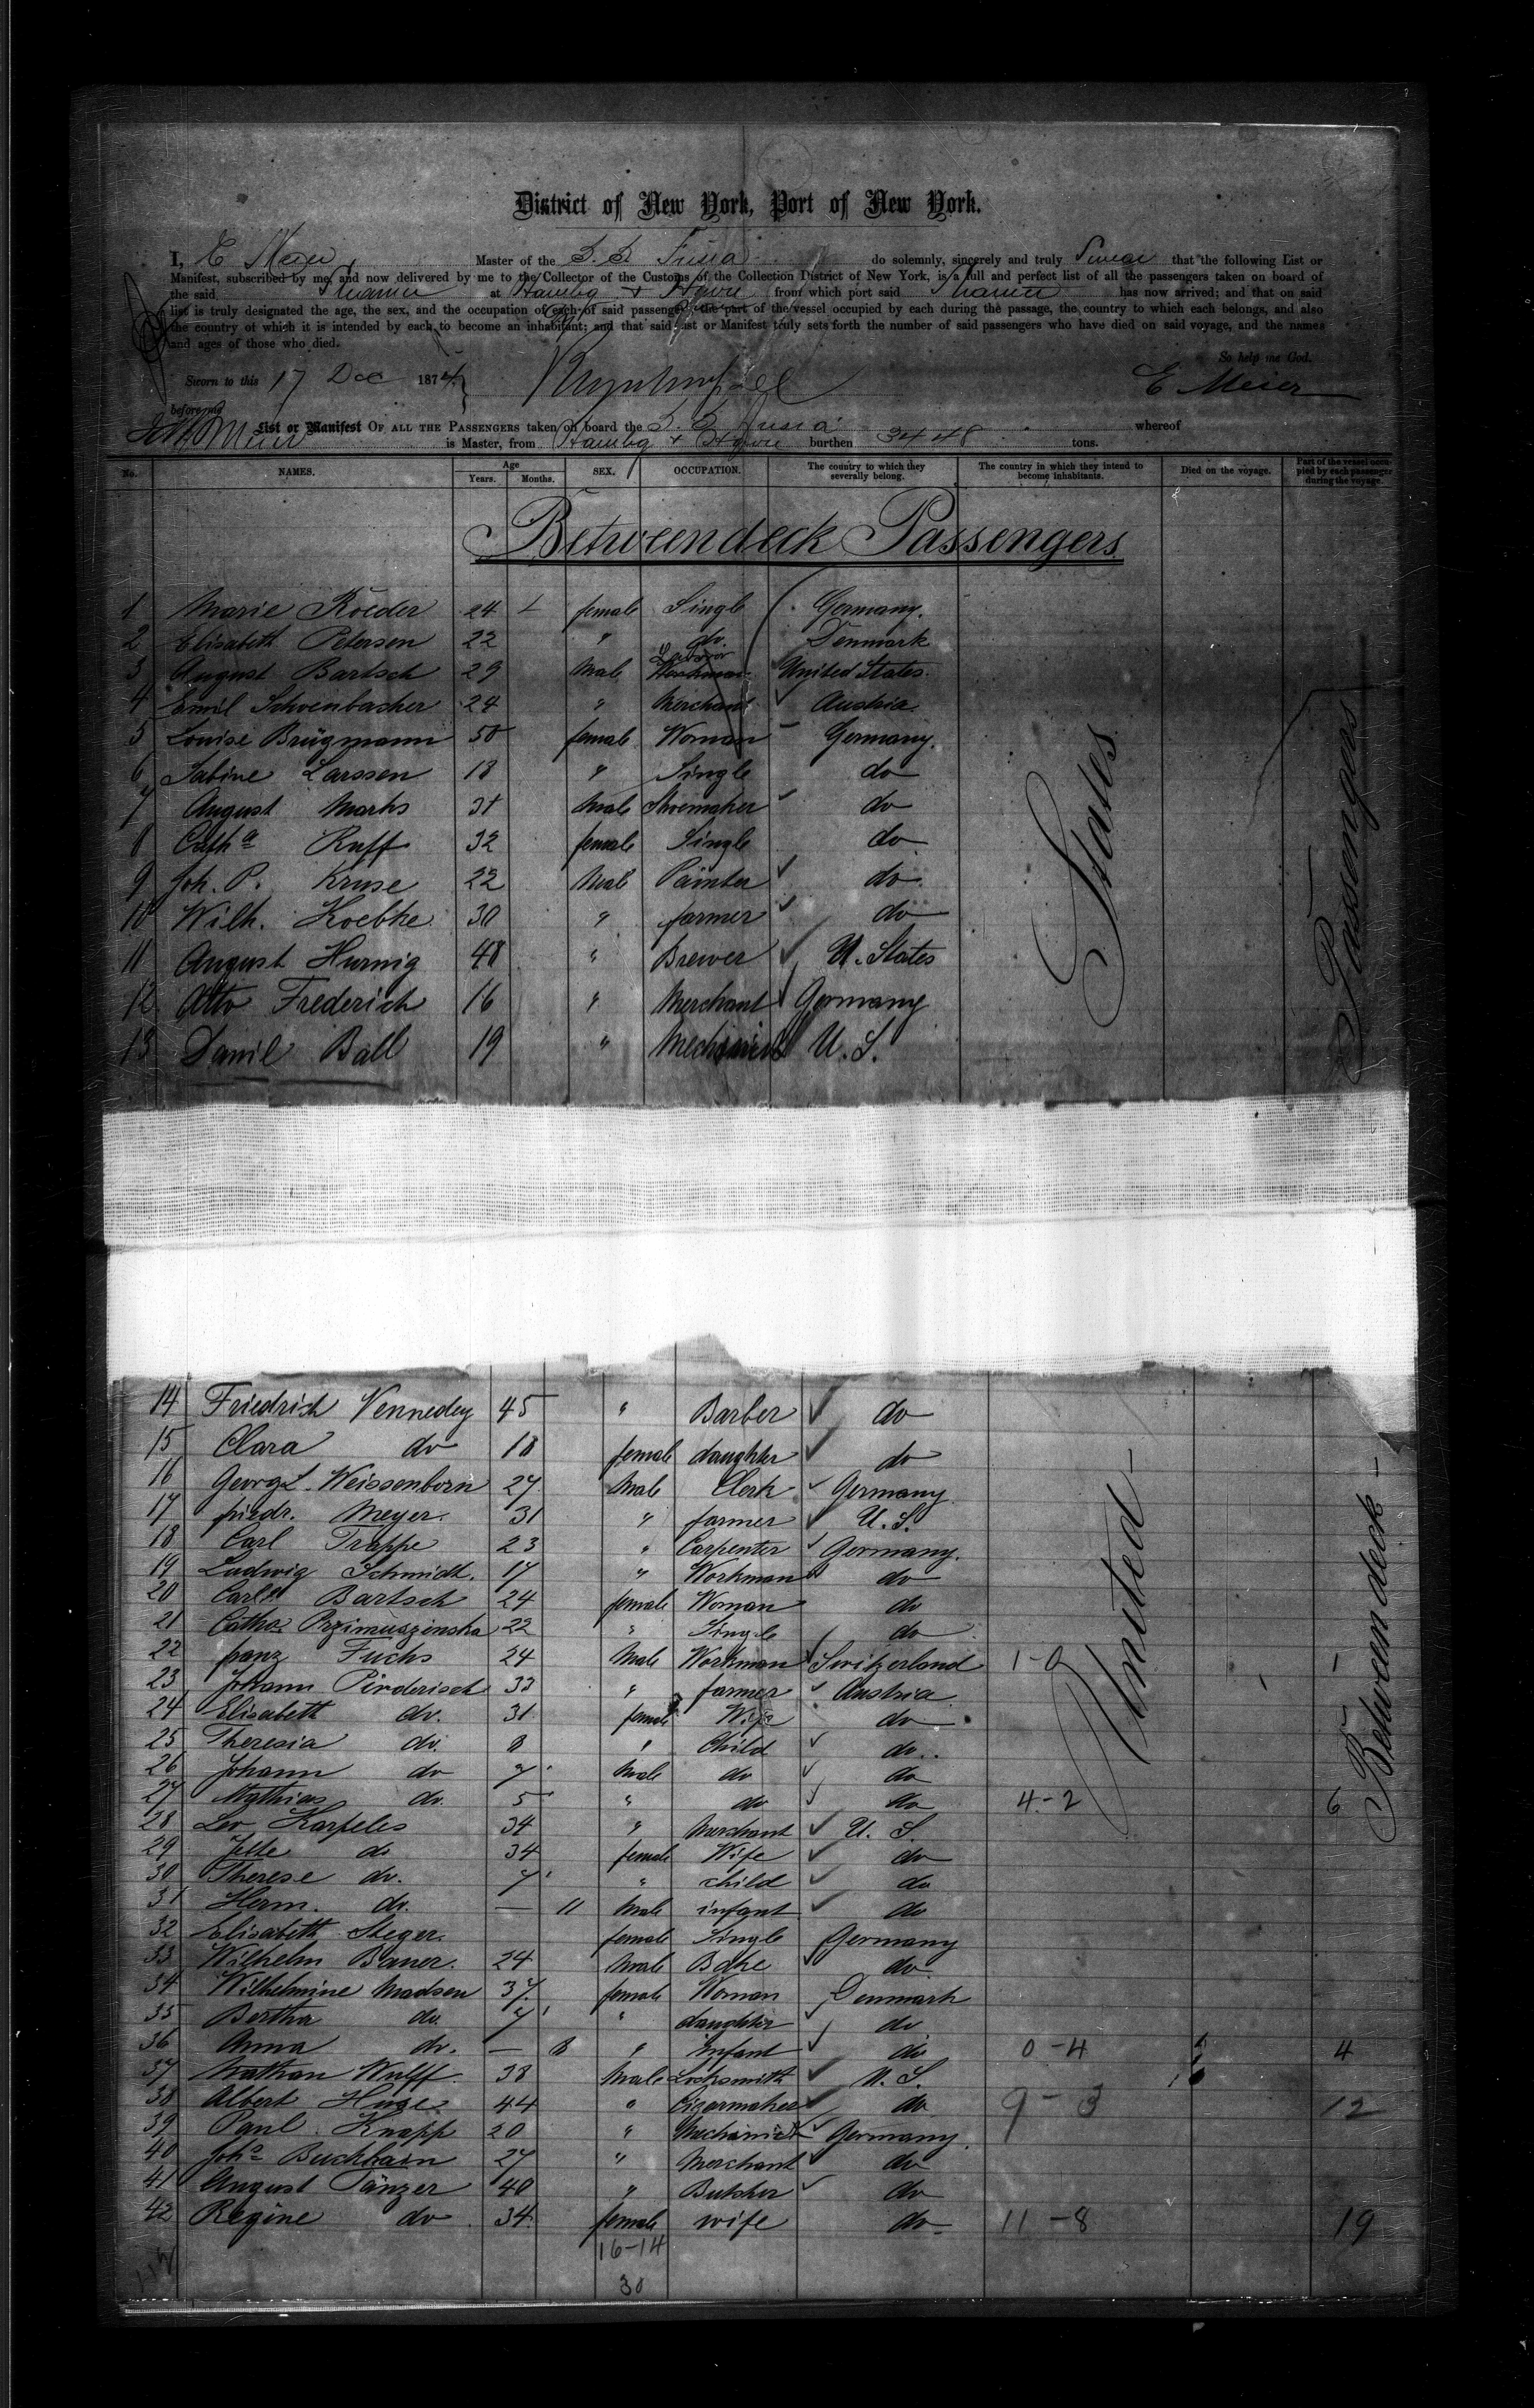 District of New York, Port of New York.
I, E Meier Master of the S.S. Frisia do solemnly, sincerely and truly Swear that the following List or
Manifest, subscribed by me, and now delivered by me to the Collector of the Customs of the Collection District of New York, is a full and perfect list of all the passengers taken on board of
the said at Hambg + from which port said has now arrived; and that on said
list is truly designated the age, the sex, and the occupation of each of said passengers, the part of the vessel occupied by each during the passage, the country to which each belongs, and also
the country of which it is intended by each to become an inhabitant; and that said List or Manifest truly sets forth the number of said passengers who have died on said voyage, and the names
and ages of those who died.
So help me God.
Sworn to this 17 Dec 1874 E Meier
before me
List or Manifest OF ALL THE PASSENGERS taken on board the S.S. Frisia whereof
is Master, from Hambg + burthen 3448 tons.
No. NAMES. Age Years. Months. SEX. OCCUPATION. The country to which they severally belong. The country in which they intend to become inhabitants. Died on the voyage. Part of the vessel occupied by each passenger during the voyage.
Betweendeck Passengers
1 Marie Roeder 24 female Single Germany.
2 Elisabeth Petersen 22 " do. Denmark
3 August Bartsch 29 Male Workman United States.
4 Emil Schoenbacher 24 " Merchant Austria
5 Louise Brügmann 50 female Woman Germany.
6 Sabine Larssen 18 " Single do
7 August Marks 31 Male Shoemaker do
8 Catha Ruff 32 female Single do
9 Joh. P. Kruse 22 Male Painter do
10 Wilh. Koebke 30 " farmer do
11 August Hurnig 48 " Brewer U. States
12 Otto Frederich 16 " Merchant Germany
13 Danil Ball 19 " U.S.
14 Friedrich Vennedey 45 " Barber do
15 Clara do 18 female daughter do
16 Georg L. Weissenborn 27 Male Clerk Germany
17 friedr. Meyer. 31 " farmer U.S.
18 Carl Trappe 23 " Carpenter Germany.
19 Ludwig Schmidt. 17 " Workman do
20 Bartsch 24 female Woman do
21 Catha Przimuszinska 22 " Single do
22 franz Fuchs 24 Male Workman Switzerland 1-0
23 Johann Pirderisch 33 " farmer Austria
24 Elisabeth do. 31 female Wife do
25 Theresia do. 8 " Child do
26 Johann do 7 Male do do
27 Mathias do. 5 " do do 4-2 6
28 Leo Karpeles 34 " Merchant U. S.
29 Jette do 34 female Wife do
30 Therese do. 7 " child do
31 Herm. do. — 11 Male infant do
32 Elisabeth Steger. female Single Germany
33 Wilhelm Bauer. 24 Male do
34 Wilhelmine Madsen 37 female Woman Denmark
35 Bertha do. 7 " daughter do
36 Anna do. — 8 " Infant do 0-4 4
37 Nathan Wulff. 38 Male Locksmith U.S.
38 Albert Huge 44 " Cigarmaker do 9-3 12
39 Paul Knapp 20 " Mechanict Germany.
40 Joha Buchhain 27 " Merchant do
41 August Tänzer 40 " Butcher do
42 Regine do 34 female wife do 11-8 19
16-14
30
United States
Betweendeck Passengers